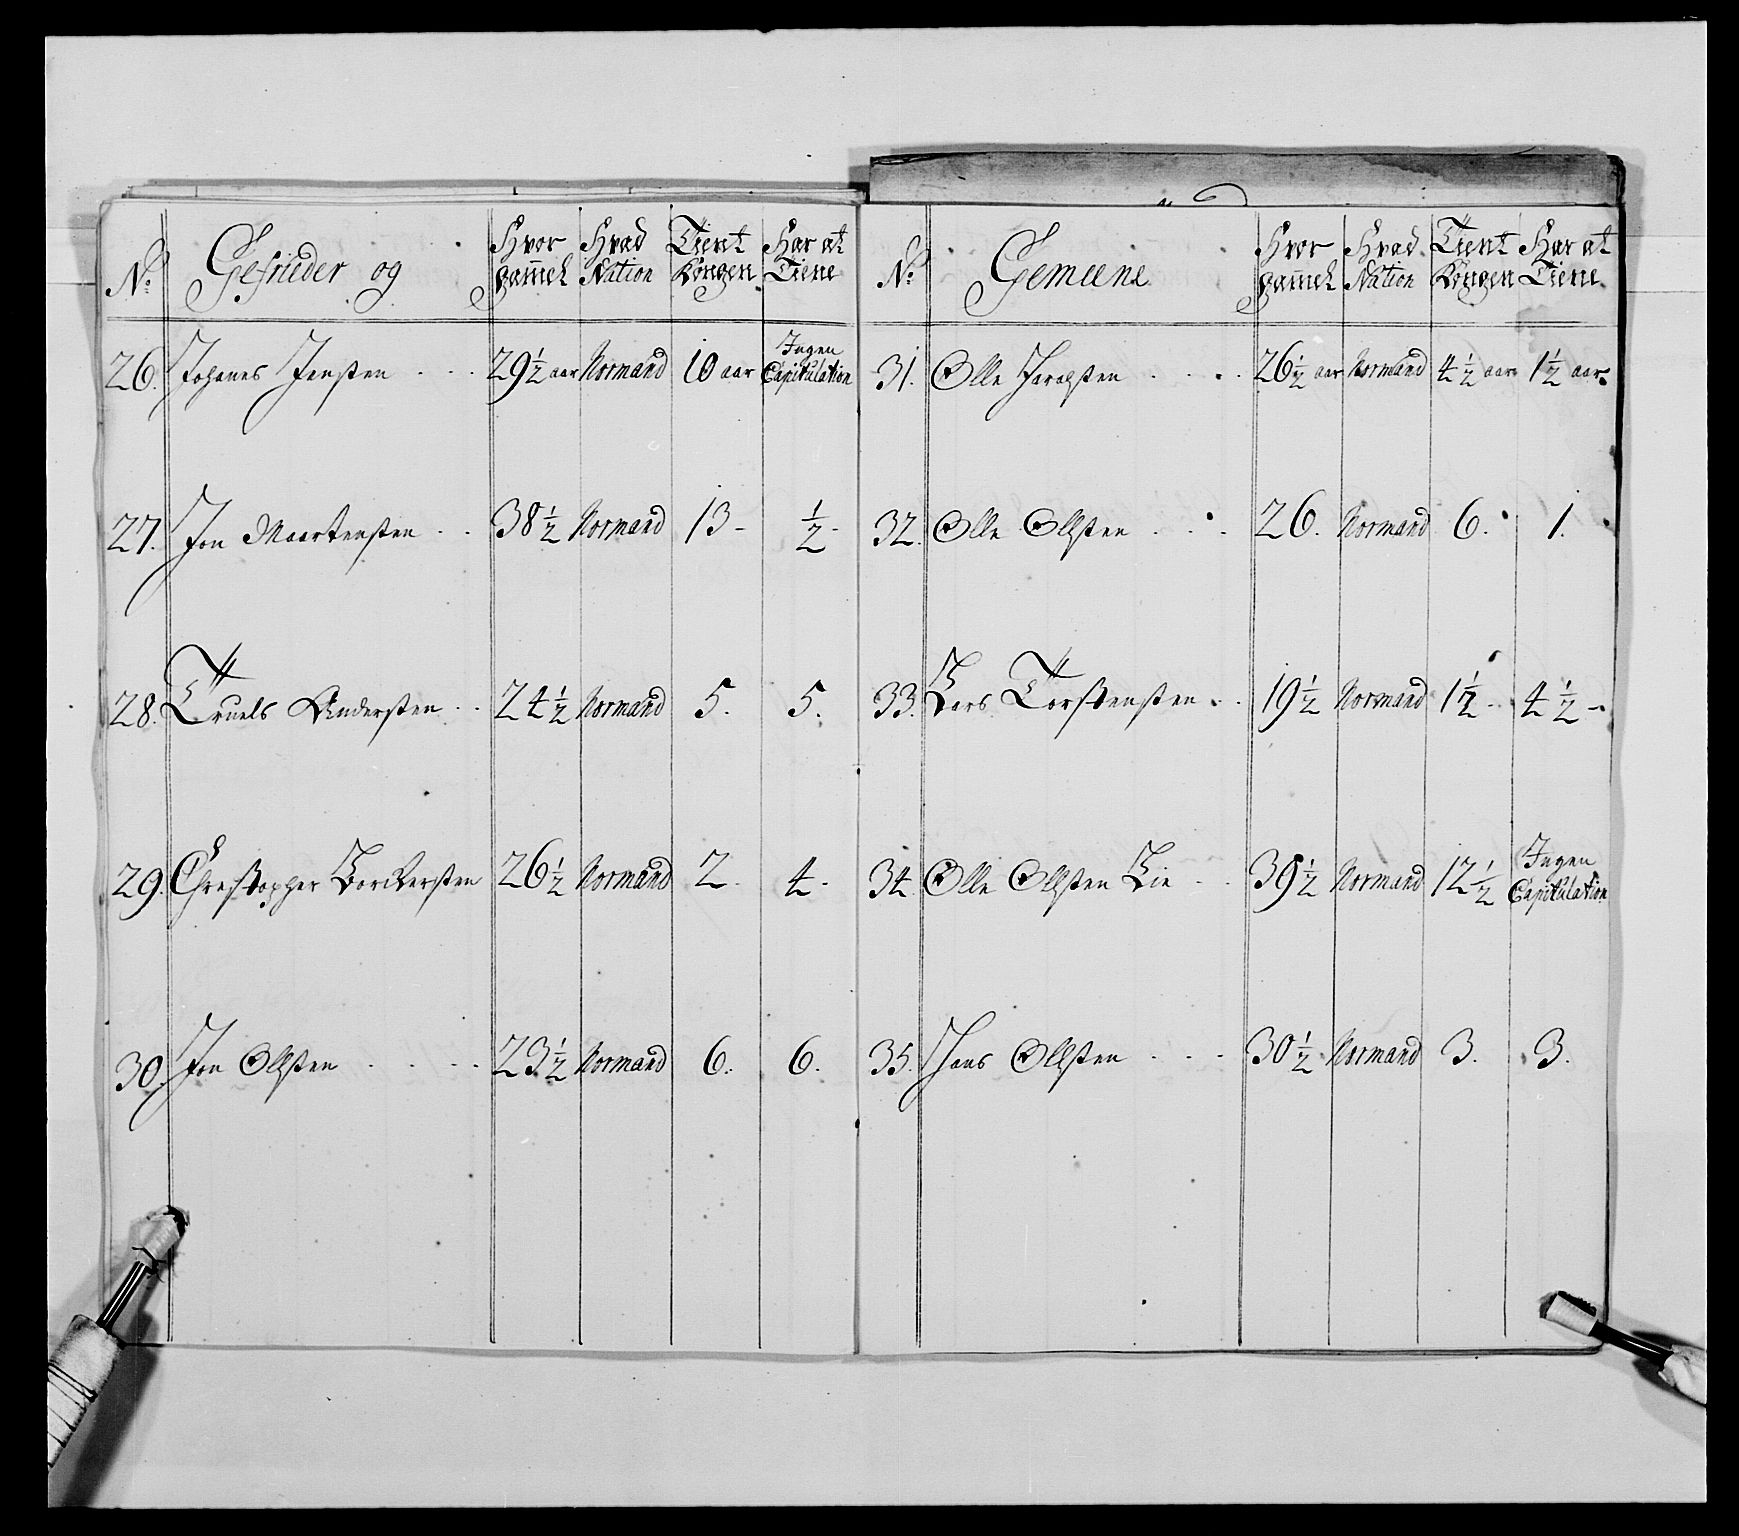 No. Gefrieder og Hvor gammel Hvad Nation Tient Kongen Har at Tiene
26. Johanes Jensten 29 1/2 aar Normand 10 aar Ingen Capitulation
27. Jon Maartensten 38 1/2 Normand 13 - 1/2 -
28. Truels Andersten 24 1/2 Normand 5. 5.
29. Chrestopher 26 1/2 Normand 2. 4 -
30. Jon Ollsten 23 1/2 Normand 6. 6.
No. Gemeene Hvor gammel Hvad Nation Tient Kongen Har at Tiene
31. Olle 26 1/2 aar Normand 4 1/2 aar 1 1/2 aar
32. Olle Ollsten 26. Normand 6. 1.
33. Lars Torstensten 19 1/2 Normand 1 1/2 - 4 1/2 -
34. Olle Ollsten Lie 39 1/2 Normand 12 1/2 Ingen Capitulation
35. Hans Ollsten 30 1/2 Normand 3. 3.